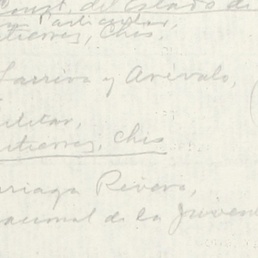 Const. del Estado de
Particular,
Gutierrez, Chis.
Larriva y Arévalo,
Militar,
Gutierrez, Chis
rriaga Rivera,
nacional de la Juven